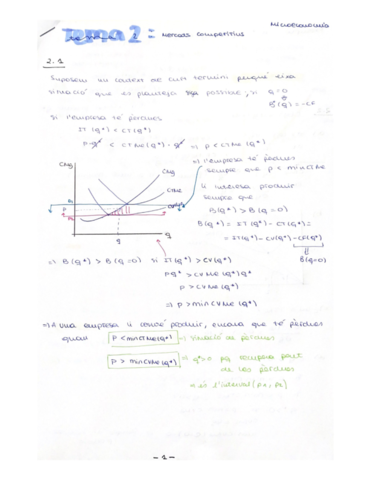 Microeconomia
Tema 2: Mercats competitius
2.1
Suposem un context de curt termini perquè sigui
situació que es planteja sigui possible, si q=0
B(q) = -CF
si l'empresa té pèrdues
IT(q*) < CT(q*)
p·q* < CTMe(q*)·q* => p < CTMe(q*)
=> l'empresa té pèrdues
sempre que p < minCTMe
li interessa produir
sempre que
B(q*) > B(q=0)
B(q*) = IT(q*) - CT(q*) =
= IT(q*) - CV(q*) - CF(q*)
B(q=0)
CMg
CMg
CTMe
CVMe
P
q
q
=> B(q*) > B(q=0) si IT(q*) > CV(q*)
Pq* > CVMe(q*)q*
P > CVMe(q*)
=> P > minCVMe(q*)
=> A una empresa li convé produir, encara que té pèrdues
quan P < minCTMe(q*) => situació de pèrdues
P > minCVMe(q*) => q*>0 pq recupera part
de les pèrdues
és l'interval (P1, P2)
- 1 -